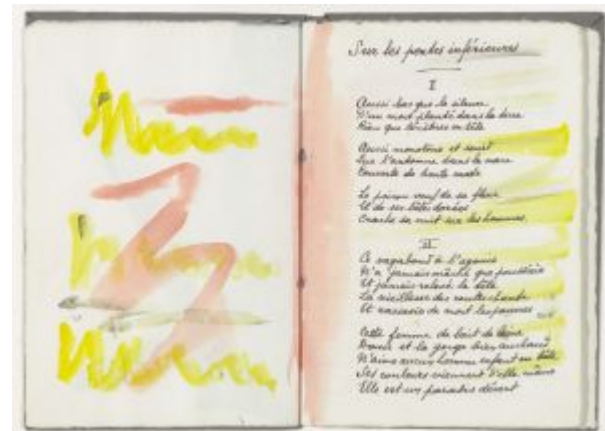 Sur les pentes inférieures
I
Aussi bas que le silence
D'un mort planté dans la terre
Rien que ténèbres en tête
Aussi monotone et sourd
Que l'automne dans la mare
Couverte de honte mate
Le poison veuf de sa fleur
Et de ses bêtes dorées
Crache sa nuit sur les hommes.
II
Ce vagabond à l'agonie
N'a jamais mâché que poussière
Et jamais relevé la tête
La vieillesse des routes chante
Et rassasie de mort les pauvres
Cette femme de lait de
et la gorge bien au chaud
N'aime aucun homme enfant ou bête
Ses couleurs viennent d'elle même
Elle est un paradis désert